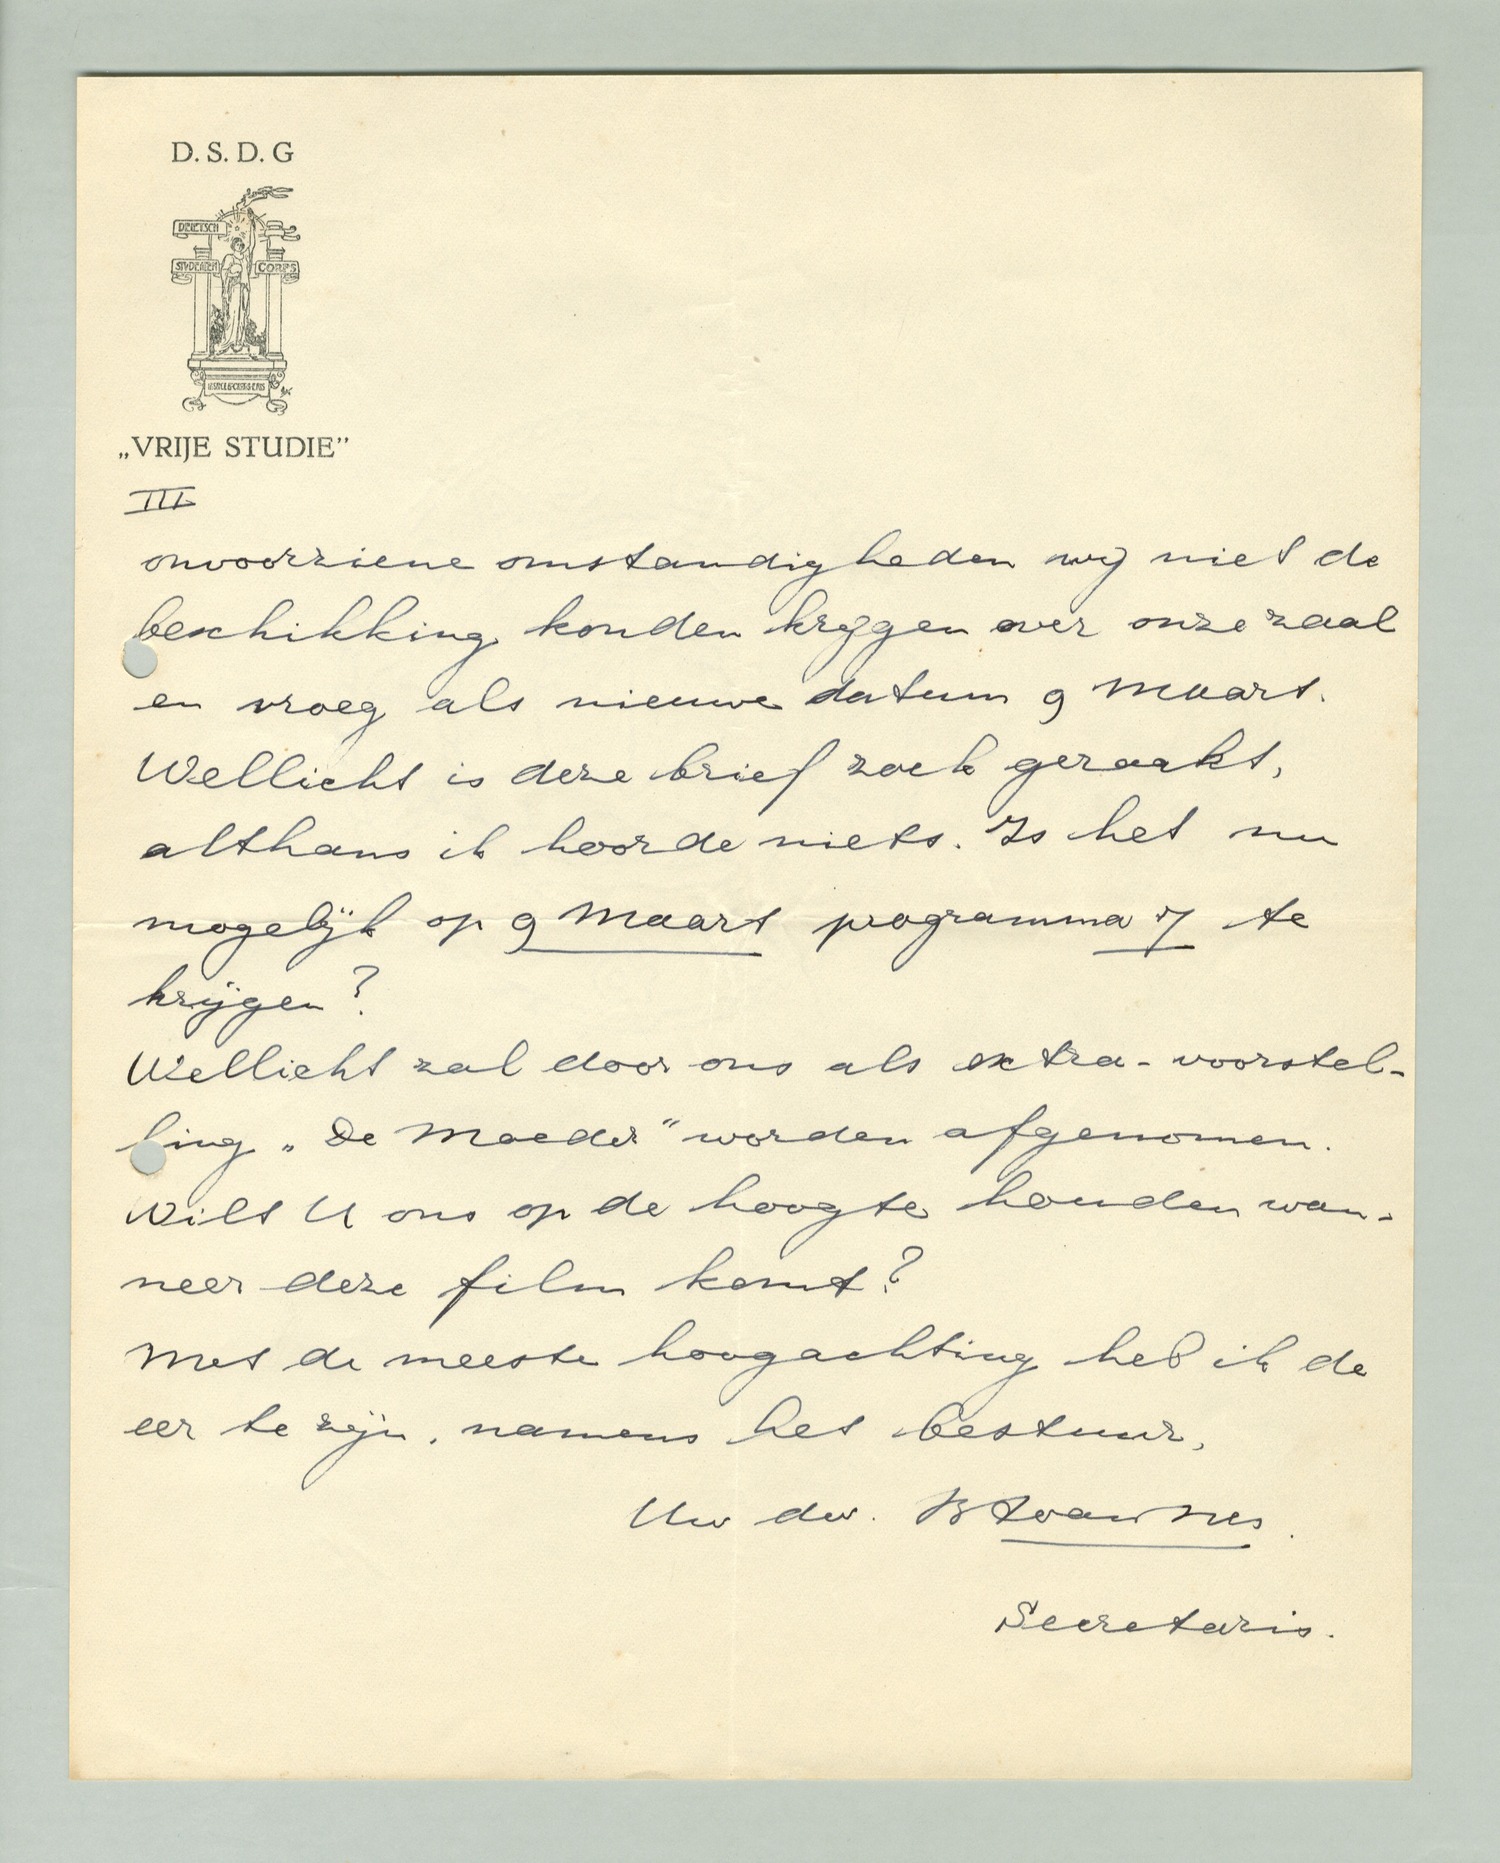 D. S. D. G
DELFTSCH
STUDENTEN CORPS
„VRIJE STUDIE”
III
onvoorziene omstandigheden wij niet de
beschikking konden krijgen over onze zaal
en vroeg als nieuwe datum 9 Maart.
Wellicht is deze brief zoek geraakt,
althans ik hoorde niets. Is het nu
mogelijk op 9 Maart programma 7 te
krijgen?
Wellicht zal door ons als extra-voorstel-
ling „De Moeder” worden afgenomen.
Wilt U ons op de hoogte houden wan-
neer deze film komt?
Met de meeste hoogachting heb ik de
eer te zijn, namens het bestuur,
Uw dw.
Secretaris.